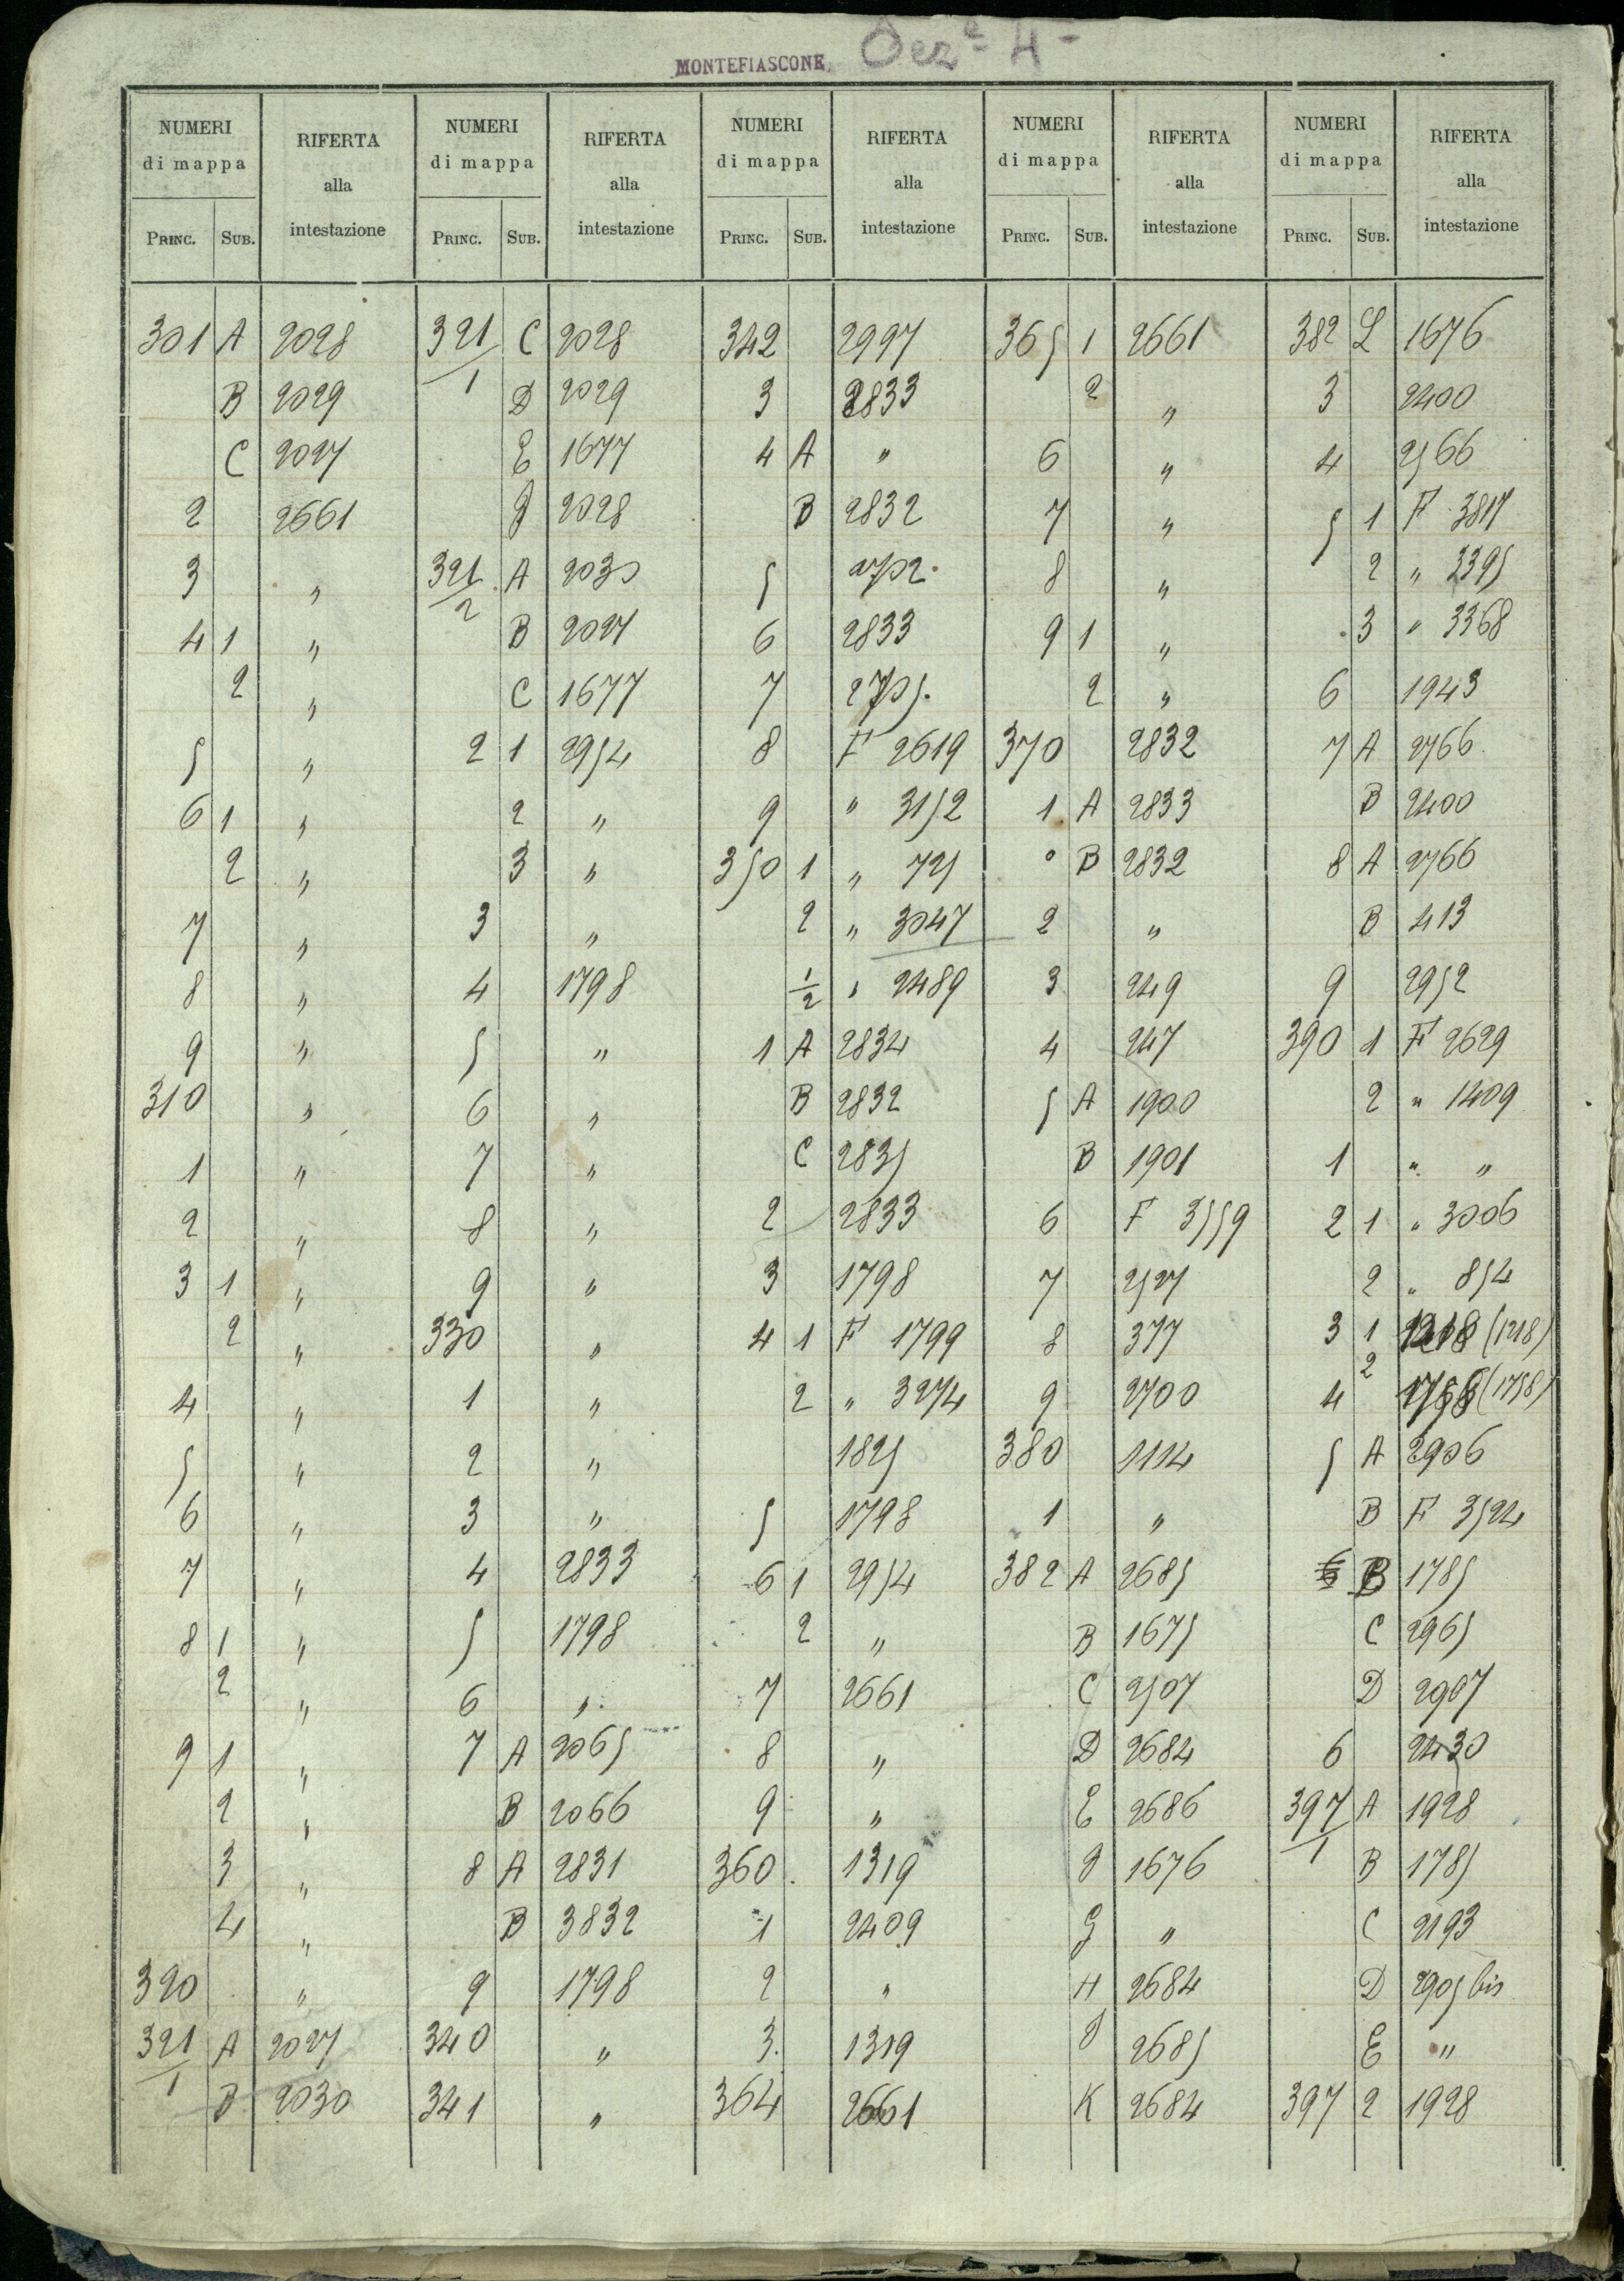 MONTEFIASCONE. Sezᵉ 4
NUMERI di mappa | RIFERTA alla intestazione | NUMERI di mappa | RIFERTA alla intestazione | NUMERI di mappa | RIFERTA alla intestazione | NUMERI di mappa | RIFERTA alla intestazione | NUMERI di mappa | RIFERTA alla intestazione
PRINC. | SUB. | PRINC. | SUB. | PRINC. | SUB. | PRINC. | SUB. | PRINC. | SUB.
301 A 2028 | 321/1 C 2028 | 342 2997 | 365 1 2661 | 382 L 1676
B 2029 | D 2029 | 3 2833 | 2 " | 3 2400
C 2027 | E 1677 | 4 A " | 6 " | 4 2566
2 2661 | J 2028 | B 2832 | 7 " | 5 1 F 3817
3 " | 321/2 A 2030 | 5 2702 | 8 " | 2 " 3395
4 1 " | B 2027 | 6 2833 | 9 1 " | 3 " 3368
2 " | C 1677 | 7 2705 | 2 " | 6 1943
5 " | 2 1 2954 | 8 F 2619 | 370 2832 | 7 A 2766
6 1 " | 2 " | 9 " 3152 | 1 A 2833 | B 2400
2 " | 3 " | 350 1 " 725 | B 2832 | 8 A 2766
7 " | 3 " | 2 " 3047 | 2 " | B 413
8 " | 4 1798 | 1/2 " 2489 | 3 249 | 9 2952
9 " | 5 " | 1 A 2834 | 4 247 | 390 1 F 2629
310 " | 6 " | B 2832 | 5 A 1900 | 2 " 1409
1 " | 7 " | C 2835 | B 1901 | 1 " "
2 " | 8 " | 2 2833 | 6 F 3559 | 2 1 " 3006
3 1 " | 9 " | 3 1798 | 7 2527 | 2 " 854
2 " | 330 " | 4 1 F 1799 | 8 377 | 3 1 1218 (1218)
2
4 " | 1 " | 2 " 3274 | 9 2700 | 4 1758 (1758)
5 " | 2 " | 1825 | 380 1114 | 5 A 2906
6 " | 3 " | 5 1798 | 1 " | B F 3524
7 " | 4 2833 | 6 1 2954 | 382 A 2685 | B 1785
8 1 " | 5 1798 | 2 " | B 1675 | C 2965
2 " | 6 " | 7 2661 | C 2507 | D 2907
9 1 " | 7 A 2065 | 8 " | D 2684 | 6 2430
2 " | B 2066 | 9 " | E 2686 | 397/1 A 1928
3 " | 8 A 2831 | 360 1319 | J 1676 | B 1785
4 " | B 3832 | 1 2409 | G " | C 2193
320 " | 9 1798 | 2 " | H 2684 | D 2905 bis
321/1 A 2027 | 340 " | 3 1319 | J 2685 | E "
B 2030 | 341 " | 364 2661 | K 2684 | 397 2 1928